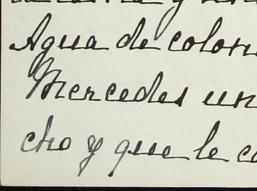 Agua de colon
Mercedes un
cho y que le c